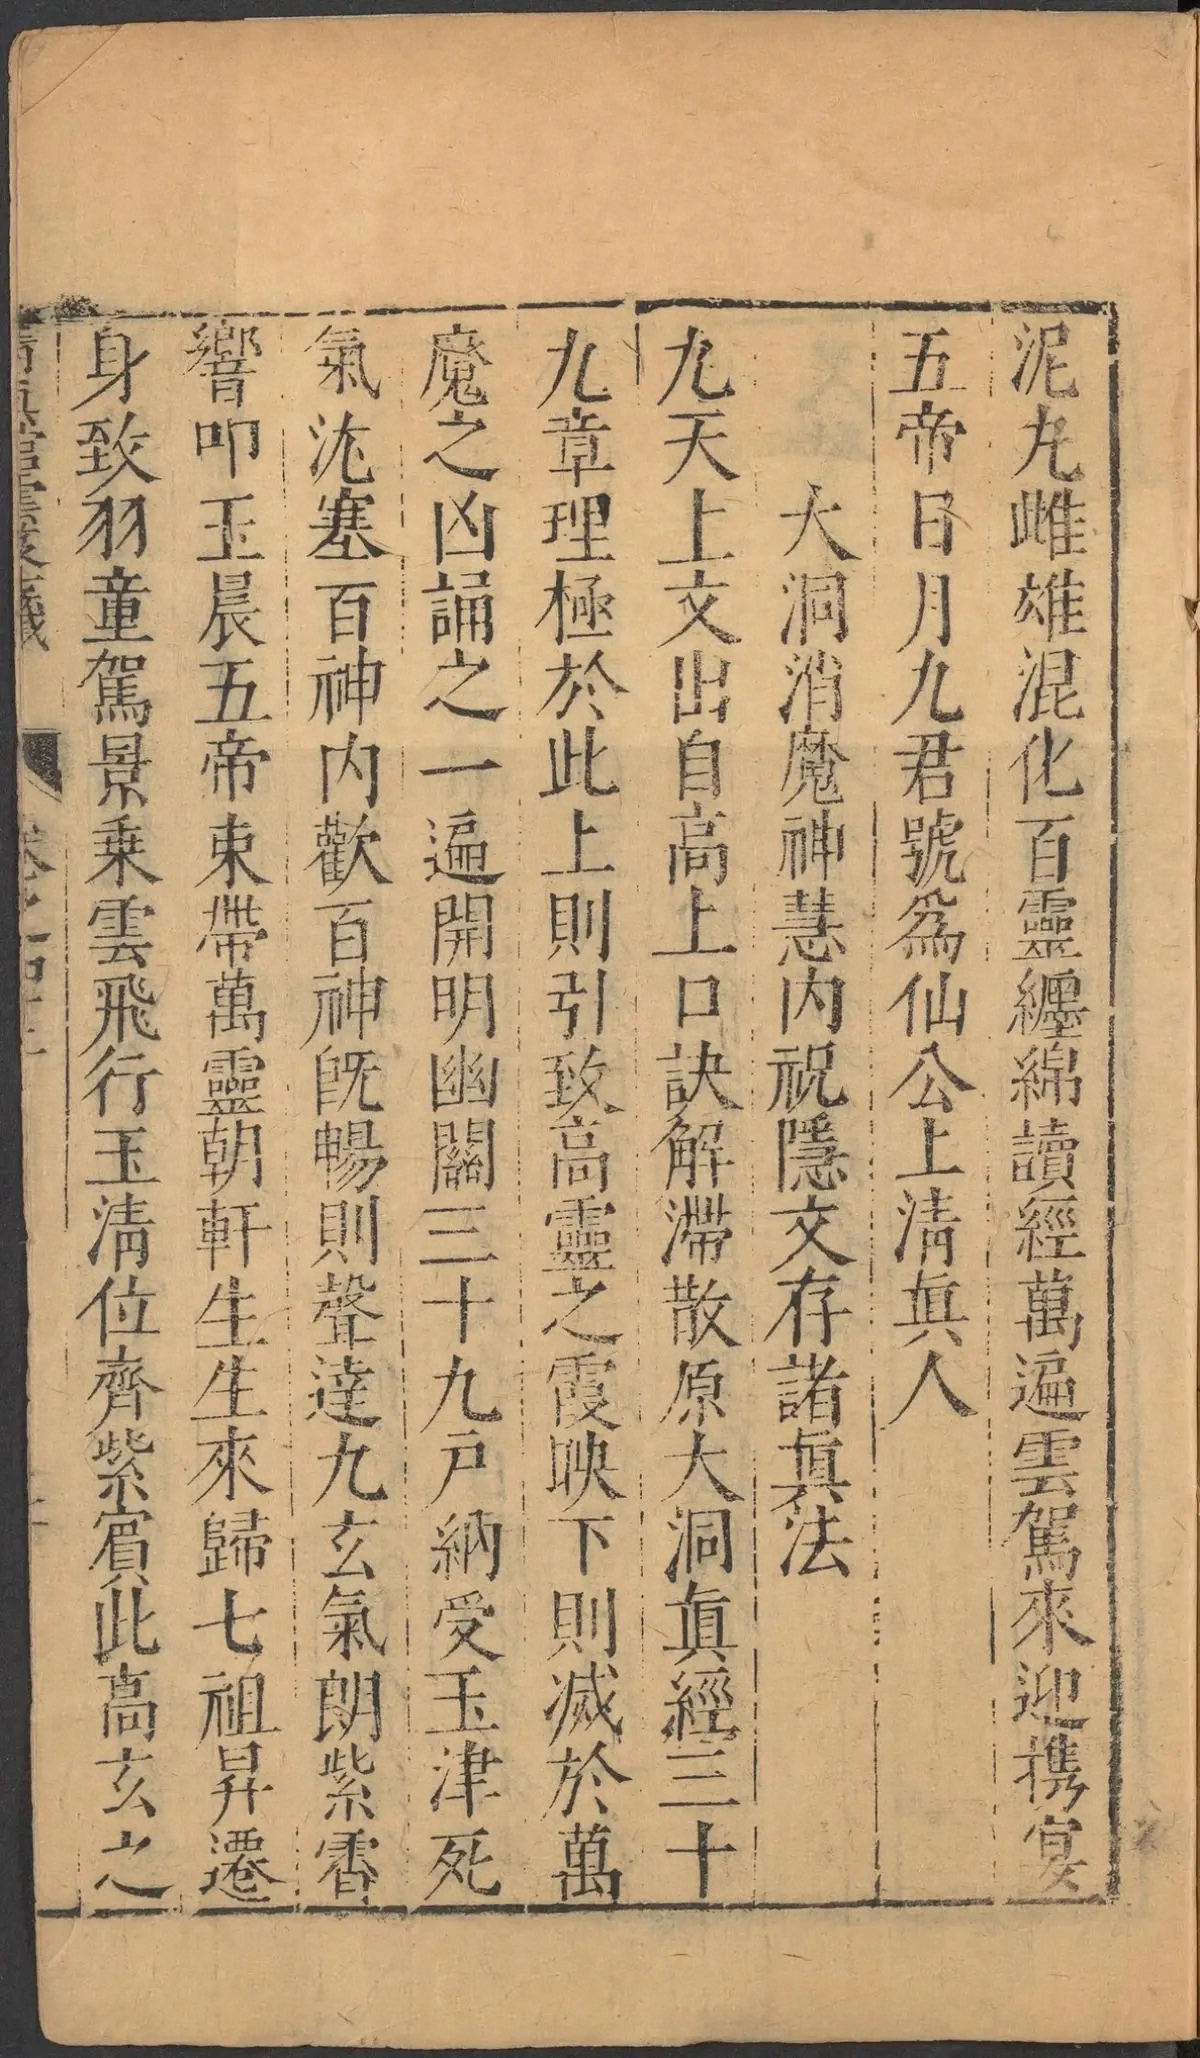 泥丸雌雄混化百靈纏綿讀經萬遍雲駕來迎携宴
五帝日月九君號為仙公上清眞人
大洞消魔神慧内祝隱文存諸眞法
九天上文出自高上口訣解滯散原大洞眞經三十
九章理極於此上則引致高靈之霞映下則滅於萬
魔之凶誦之一遍開明幽關三十九戸納受玉津死
氣沇塞百神内歡百神旣暢則聲達九玄氣朗紫霄
響叩玉晨五帝束帶萬靈朝軒生生來歸七祖昇遷
身致羽童駕景乗雲飛行玉淸位齊紫賔此高玄之